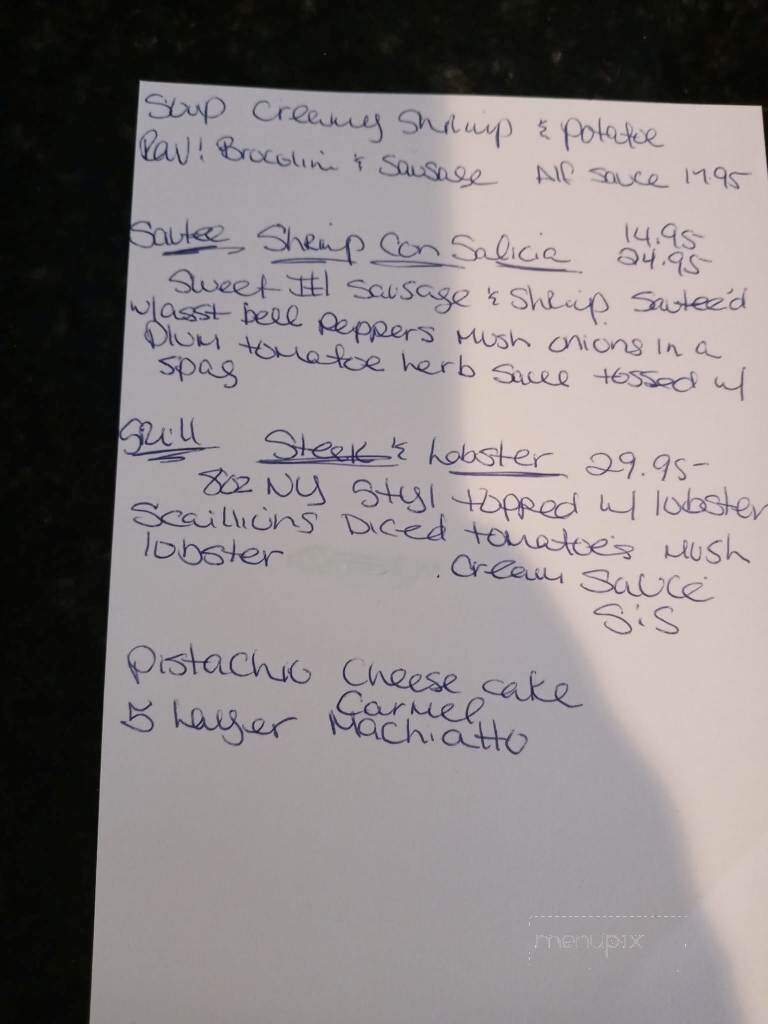 Soup Creamy Shrimp & potatoe
Rav! Brocolini & Sausage Alf sauce 17.95
Sautee Shrimp Con Salicia 14.95
24.95
Sweet Itl sausage & Shrimp Sautee'd
w/asst bell peppers Mush onions in a
plum tomatoe herb sauce tossed w/
spag
Grill Steak & Lobster 29.95
8oz NY Styl topped w/ lobster
Scaillions Diced tomatoe's Mush
lobster . Cream Sauce
S:S
Pistachio Cheese cake
5 Layer Carmel
Machiatto
menupix